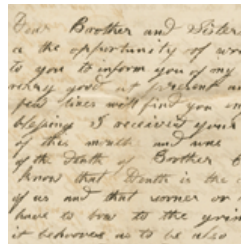 Dear Brother and Sister
the opportunity of
to you to inform you of my
very good at present
few lines will find you
blessings I received your
of this month and was
of the Death of Brother
know that Death is the
of us and that sooner or
have to bow to the
it behooves us to be also